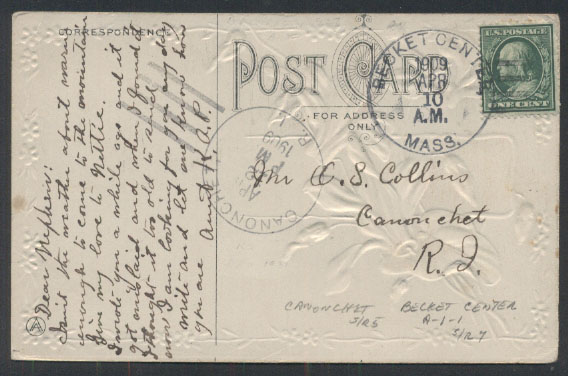 CORRESPONDENCE
POST CARD
FOR ADDRESS
ONLY
BECKET CENTER
1909
APR
10
A.M.
MASS.
U.S. POSTAGE
ONE CENT
CANONCHET
R.I.
AP
M
1909
Dear Nephew:
Isn't the weather about warm
enough to come to the mountain
Give my love to Nettie.
I wrote you a while ago and it
got mislaid and when I found it
I thought it too old to send
now I am looking for you any day
write and let me know how
you are Aunt H. A. P.
Mr C. S. Collins
Canonchet
R. I.
CANONCHET
S/R5
BECKET CENTER
A-1-1
S/R7